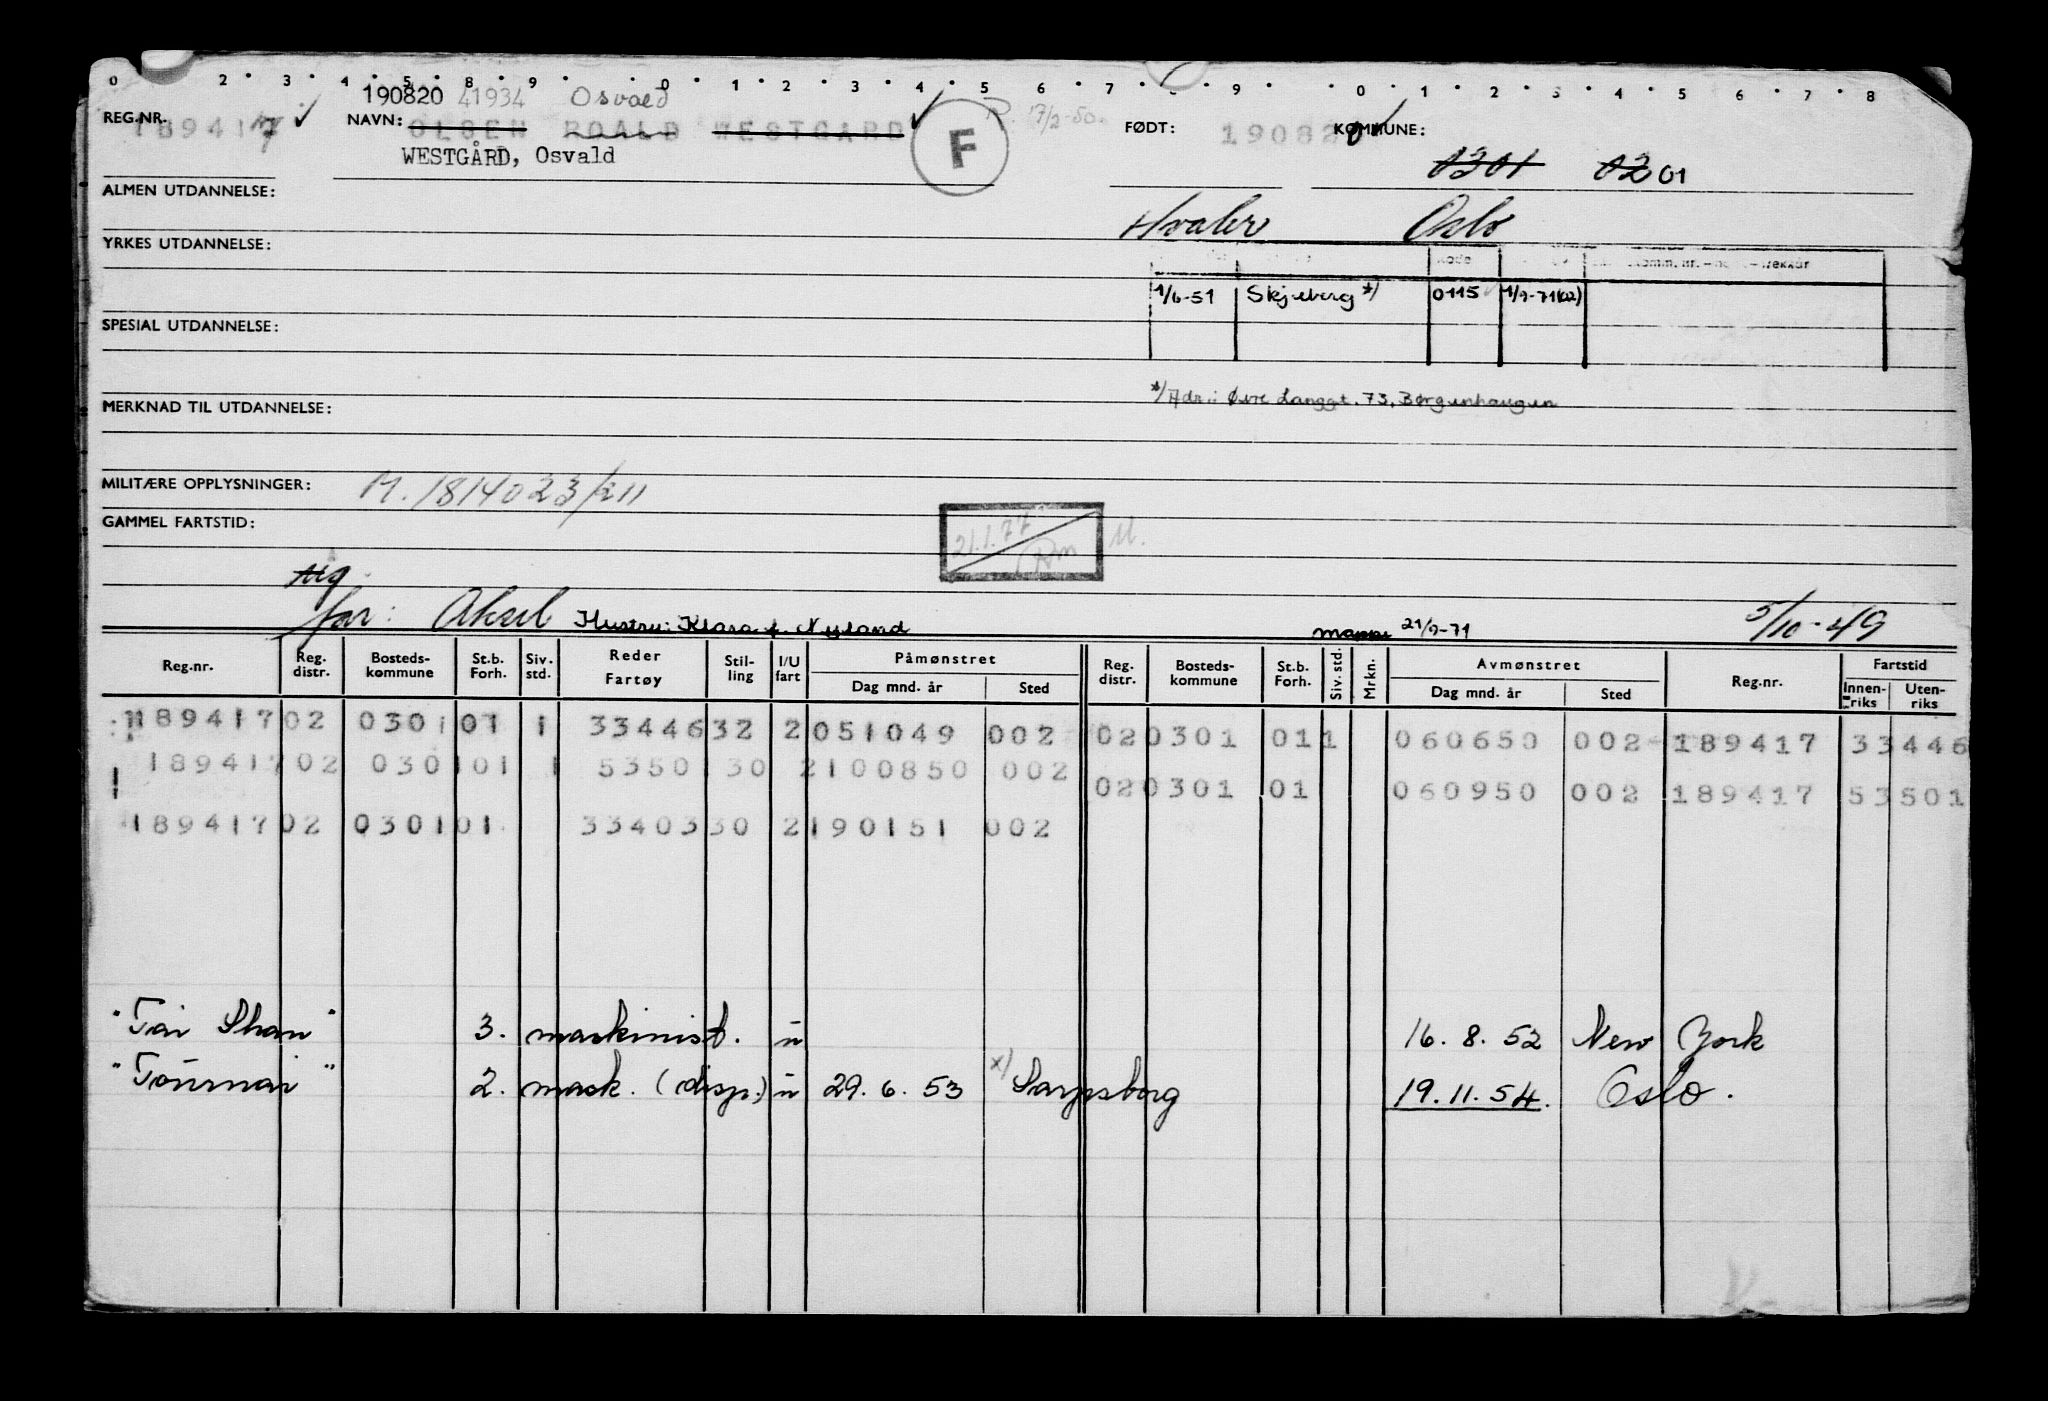 0 2 3 4 5 8 9 0 1 2 3 4 5 6 7 9 0 1 2 3 4 5 6 7 8
190820 41934 Osvald
REG.NR. 189417 NAVN: OLSEN ROALD WESTGARD F 17/2-50. FØDT: 190820 KOMMUNE:
WESTGÅRD, Osvald 0301 02 01
ALMEN UTDANNELSE:
Hvaler Oslo
YRKES UTDANNELSE:
Kode
1/6-51 Skjeberg */ 0115 1/9-71(02)
SPESIAL UTDANNELSE:
*/Adr.: Øvre Langgt. 73, Borgenhaugen
MERKNAD TIL UTDANNELSE:
MILITÆRE OPPLYSNINGER: M. 1814023/211
GAMMEL FARTSTID:
21.1.77 M.
far: Aksel Hustru: Klara f. Nyland mappe 21/9-71 5/10-49
Reg.nr. Reg. distr. Bosteds-kommune St.b. Forh. Siv. std. Reder Fartøy Stil-ling I/U fart Påmønstret Dag mnd. år Sted Reg. distr. Bosteds-kommune St.b. Forh. Siv. std. Mrkn. Avmønstret Dag mnd. år Sted Reg.nr. Fartstid Innen-riks Uten-riks
189417 02 0301 01 1 33446 32 2 051049 002 02 0301 01 1 060650 002 189417 33446
189417 02 0301 01 1 53501 30 2 100850 002
02 0301 01 060950 002 189417 53501
189417 02 0301 01 33403 30 2 190151 002
"Tai Shan" 3. maskinist. u 16. 8. 52 New York
"Tournai" 2. mask. (disp.) u 29. 6. 53 x/ Sarpsborg 19. 11. 54. Oslo.